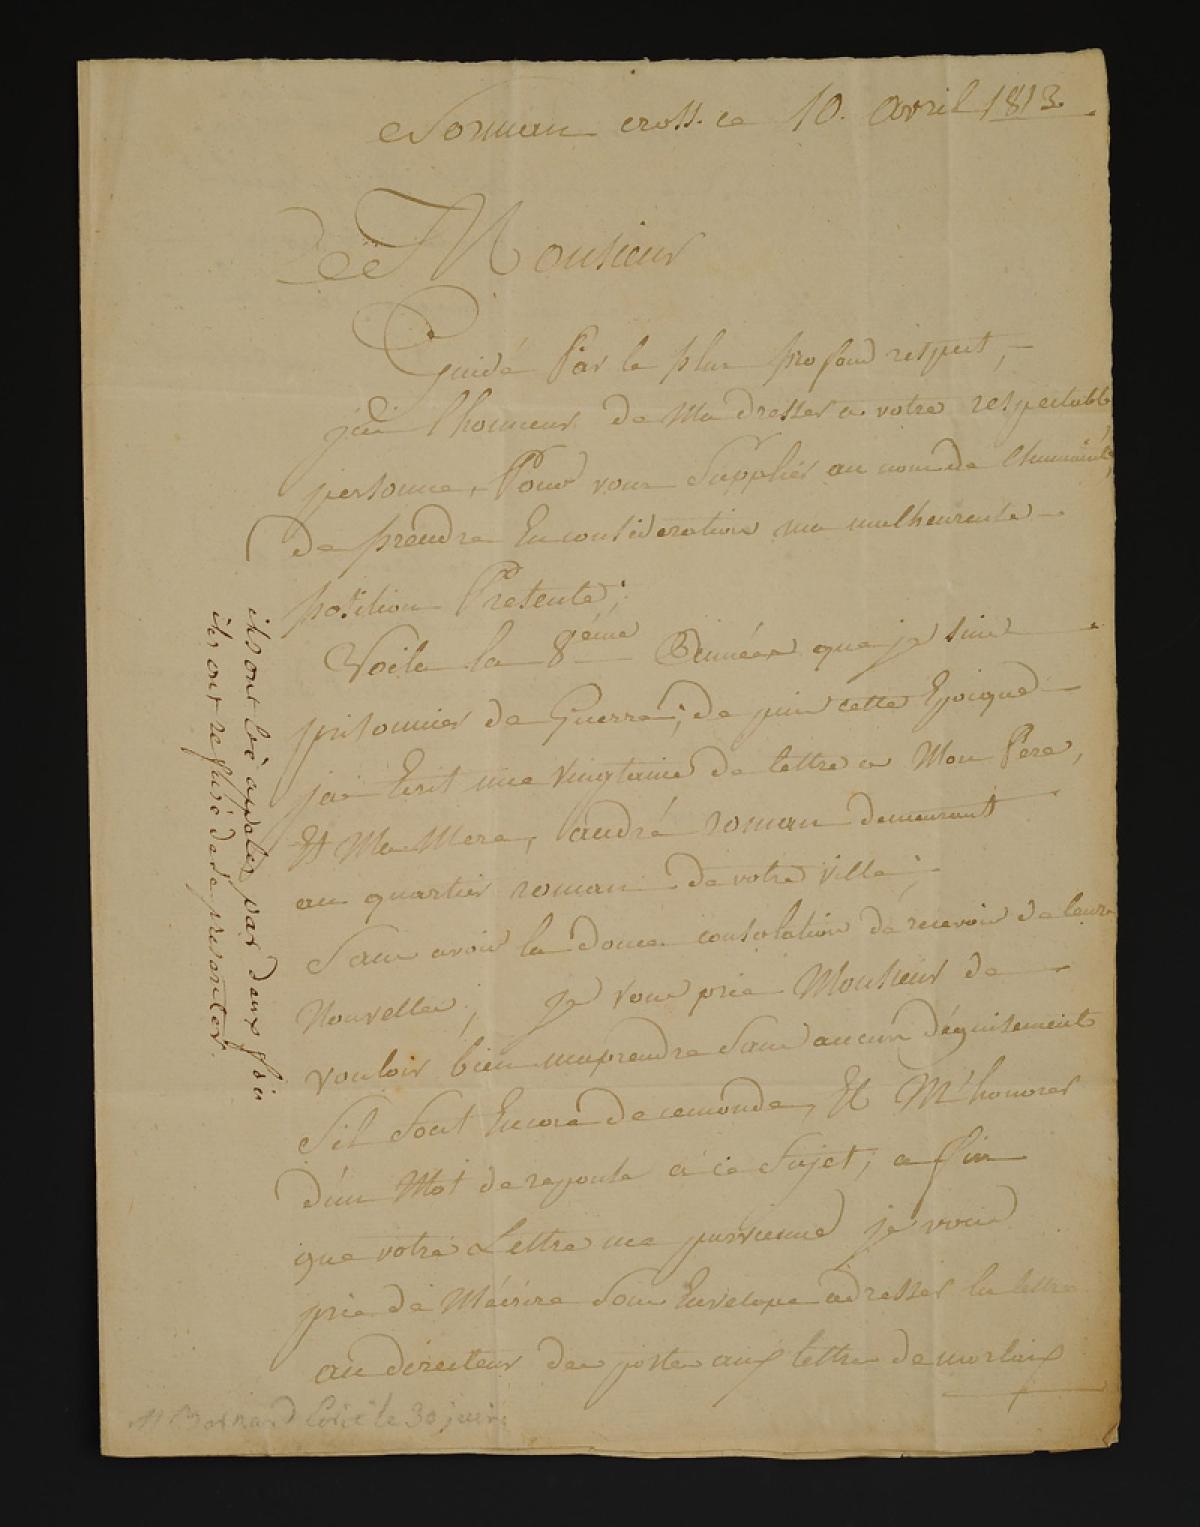 Norman cross. ce 10. Avril 1813.
Monsieur
Guidé Par le plus profond respect,
jai lhonneur de Madresser a votre respectable
personne, Pour vous Supplier au nom de lhumanité,
de prendre En consideration ma malheureuse
position Presente;
Voila la 8ème année que je suis
prisonnier de Guerre; de puis cette Epoique
jai Ecrit une vingtaine de lettre a Mon Pere,
Et Ma Mere, andré roman demeurant
au quartier roman de votre ville;
Sans avoir la douce consolation de recevoir de leurs
Nouvelles; je vous prie Monsieur de
vouloir bien maprendre Sans aucun déguisement
Sil Sont Encore de ce monde, Et M'honorer
d'un Mot de reponse a ce Sujet; a fin
que votre Lettre me parvienne je vous
prie de Mécrire Sous Envelope adresser la lettre
au directeur des postes aux lettres de morlaix
ils ont été appeler par deux fois
ils ont refusé de se presenter.
M Bernard le 30 juin